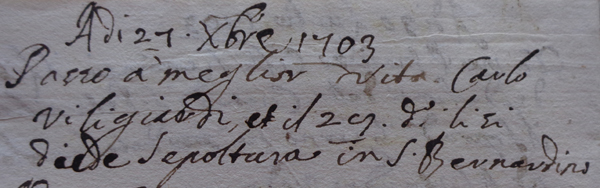 Adi 27. Xbre 1703
Passo à meglior vita Carlo
Viligiardi, et il 29. d° li si
diede Sepoltura in S. Bernardino